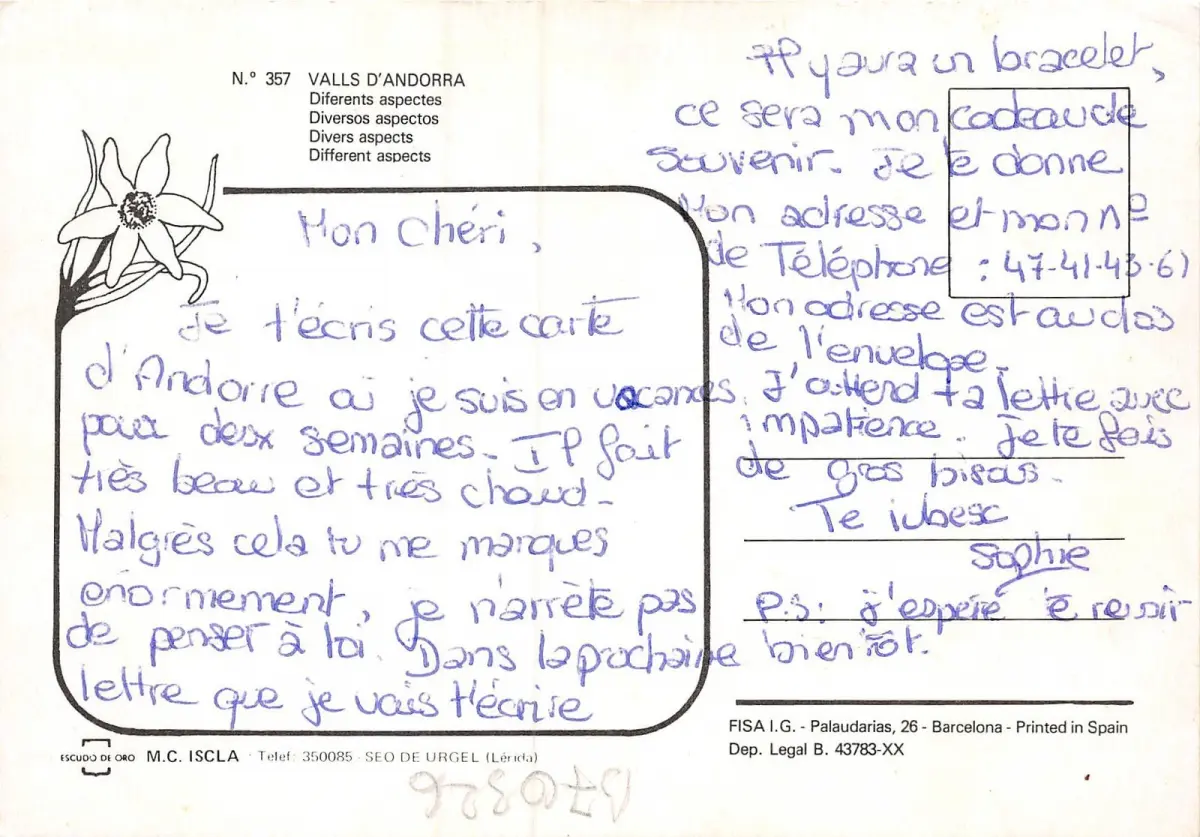 N.º 357 VALLS D'ANDORRA
Diferents aspectes
Diversos aspectos
Divers aspects
Different aspects
Mon Chéri,
Je t'écris cette carte
d'Andorre où je suis en vacances
pour deux semaines. Il fait
très beau et très chaud.
Malgrès cela tu me manques
enormement, je n'arrète pas
de penser à toi. Dans la prochaine
lettre que je vais t'écrire
Il y aura un bracelet,
ce sera mon cadeau de
souvenir. Je te donne
Mon adresse et mon nº
de Téléphone : 47-41-43-61
Mon adresse est au dos
de l'enveloppe.
J'attend ta lettre avec
impatience. Je te fais
de gros bisous.
Te iubesc
Sophie
P.S: j'espère te revoir
bientôt.
ESCUDO DE ORO M.C. ISCLA · Telef. 350085 · SEO DE URGEL (Lérida)
FISA I.G. - Palaudarias, 26 - Barcelona - Printed in Spain
Dep. Legal B. 43783-XX